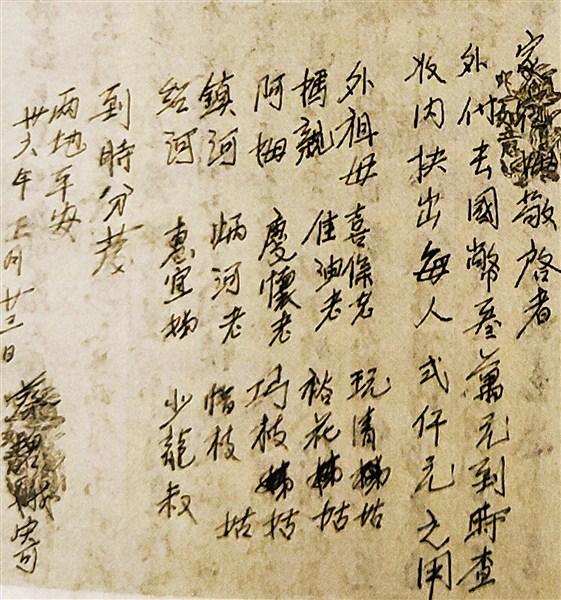 家敬啓者
外付去國幣叁萬元到時查
收内抉出每人弍仟元之用
外祖母 喜保老 玩清姑
親 佳迪老 裕花姑
阿姆 慶懷老 巧枝姑
鎮河 炳河老 惜枝姑
紹河 惠宜姊 少龍叔
到時分發
兩地平安
卅六年正月廿三日 蔡寄